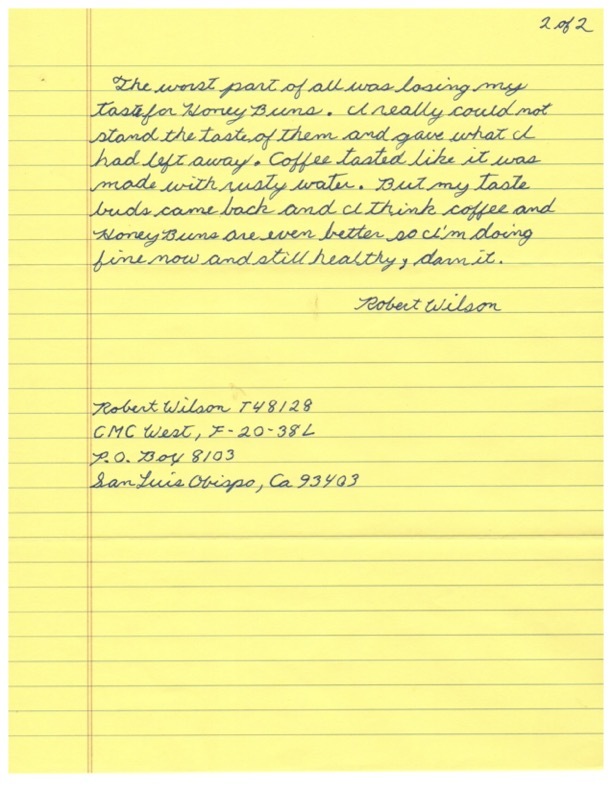 2 of 2
The worst part of all was losing my
taste for Honey Buns. I really could not
stand the taste of them and gave what I
had left away. Coffee tasted like it was
made with rusty water. But my taste
buds came back and I think coffee and
Honey Buns are even better so I'm doing
fine now and still healthy, darn it.
Robert Wilson
Robert Wilson T48128
CMC West, F-20-38L
P.O. Box 8103
San Luis Obispo, Ca 93403